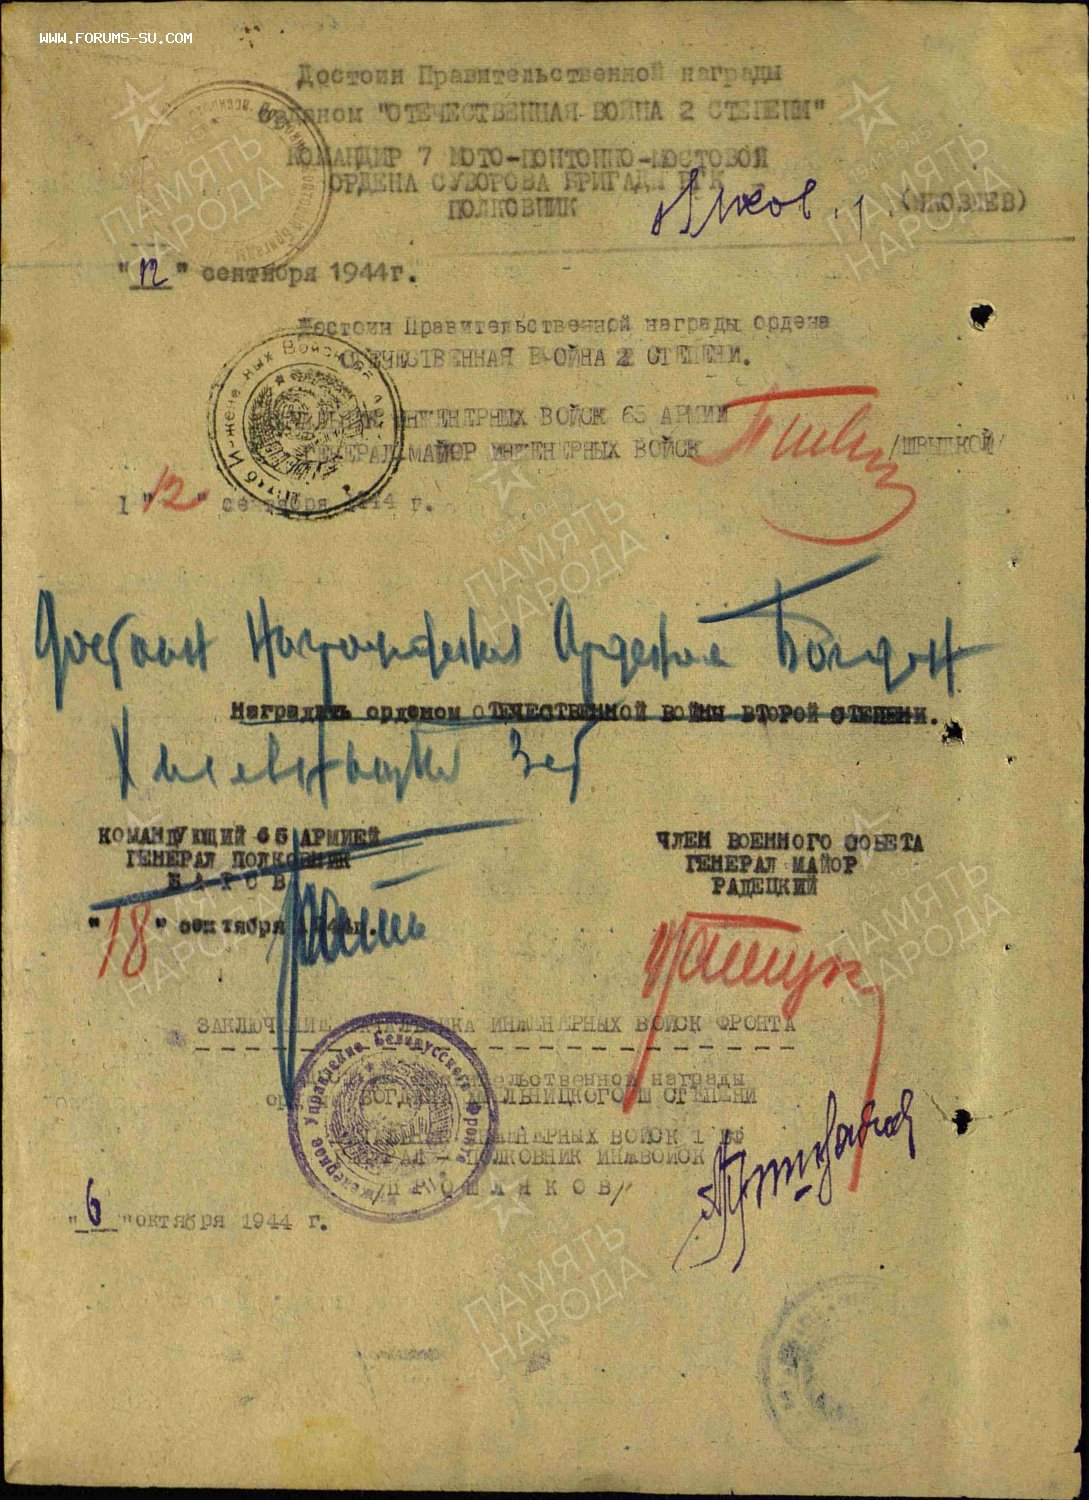 WWW.FORUMS-SU.COM
Достоин Правительственной награды
орденом "ОТЕЧЕСТВЕННАЯ ВОЙНА 2 СТЕПЕНИ"
КОМАНДИР 7 МОТО-ПОНТОННО-МОСТОВОЙ
ОРДЕНА СУВОРОВА БРИГАДЫ РГК
ПОЛКОВНИК (ЯКОВЛЕВ)
"12" сентября 1944г.
Достоин Правительственной награды ордена
ОТЕЧЕСТВЕННАЯ ВОЙНА 2 СТЕПЕНИ.
ИНЖЕНЕРНЫХ ВОЙСК 65 АРМИИ
ГЕНЕРАЛ МАЙОР ИНЖЕНЕРНЫХ ВОЙСК /ШВЫДКОЙ/
"12" сентября 1944 г.
Достоин Награждения Ордена Богдан
Наградить орденом ОТЕЧЕСТВЕННОЙ ВОЙНЫ ВТОРОЙ СТЕПЕНИ.
Хмельницкий 3 ст
КОМАНДУЮЩИЙ 65 АРМИЕЙ
ГЕНЕРАЛ ПОЛКОВНИК
БАТОВ
"18" сентября 1944г.
ЧЛЕН ВОЕННОГО СОВЕТА
ГЕНЕРАЛ МАЙОР
РАДЕЦКИЙ
ЗАКЛЮЧЕНИЕ НАЧАЛЬНИКА ИНЖЕНЕРНЫХ ВОЙСК ФРОНТА
Инженерное Управление Белорусского Фронта
правительственной награды
БОГДАНА ХМЕЛЬНИЦКОГО Ш СТЕПЕНИ
НАЧАЛЬНИК ИНЖЕНЕРНЫХ ВОЙСК 1 БФ
ГЕНЕРАЛ - ПОЛКОВНИК ИНЖВОЙСК
/ПРОШЛЯКОВ/
"6" октября 1944 г.
ПАМЯТЬ НАРОДА